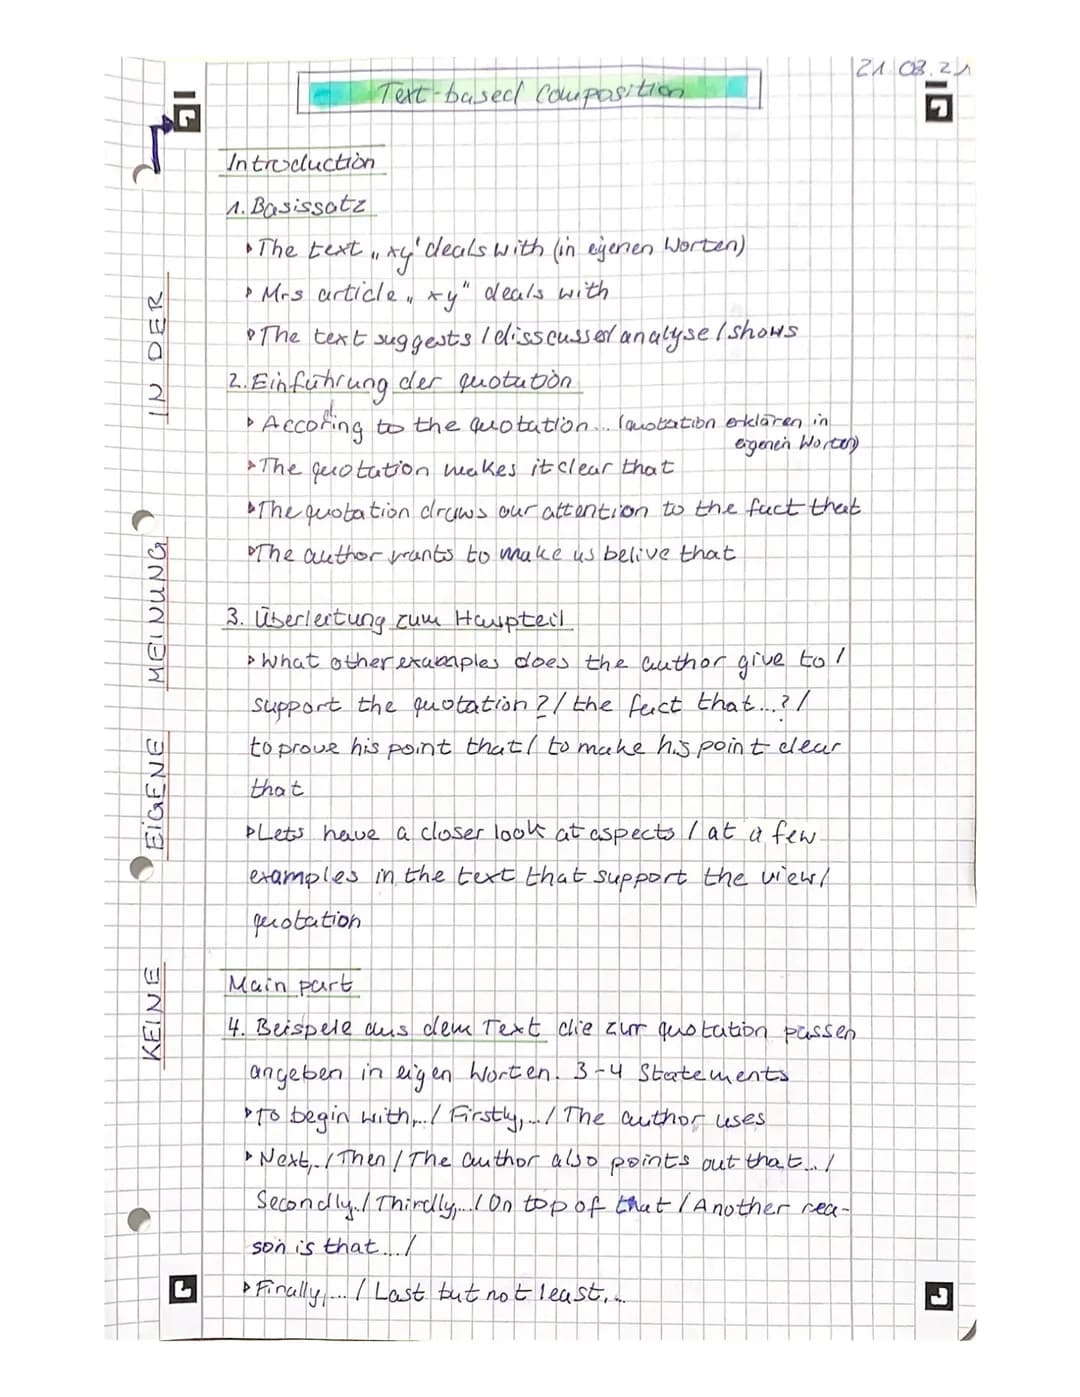 21.03.21
Text-based Composition
Introduction
1. Basissatz
The text „xy" deals with (in eigenen Worten)
Mrs article „xy" deals with
The text suggests / disscusses/analyse/shows
2. Einführung der quotation
Accoring to the quotation... (quotation erklären in
d
eigenen Worten)
The quotation makes it clear that
The quotation draws our attention to the fact that
The author wants to make us belive that
3. Überleitung zum Haupteil
What other examples does the author give to /
support the quotation?/ the fact that...?/
to prove his point that/ to make his point clear
that
Lets have a closer look at aspects / at a few
examples in the text that support the view/
quotation
Main part
4. Beispele aus dem Text die zur quotation passen
angeben in eigen Worten. 3-4 Statements
To begin with,../ Firstly,../ The author uses
Next,../Then / The author also points out that.../
Secondly../ Thirdly,../ On top of that / Another rea-
son is that.../
Finally,... / Last but not least,..
KEINE EIGENE MEINUNG IN DER